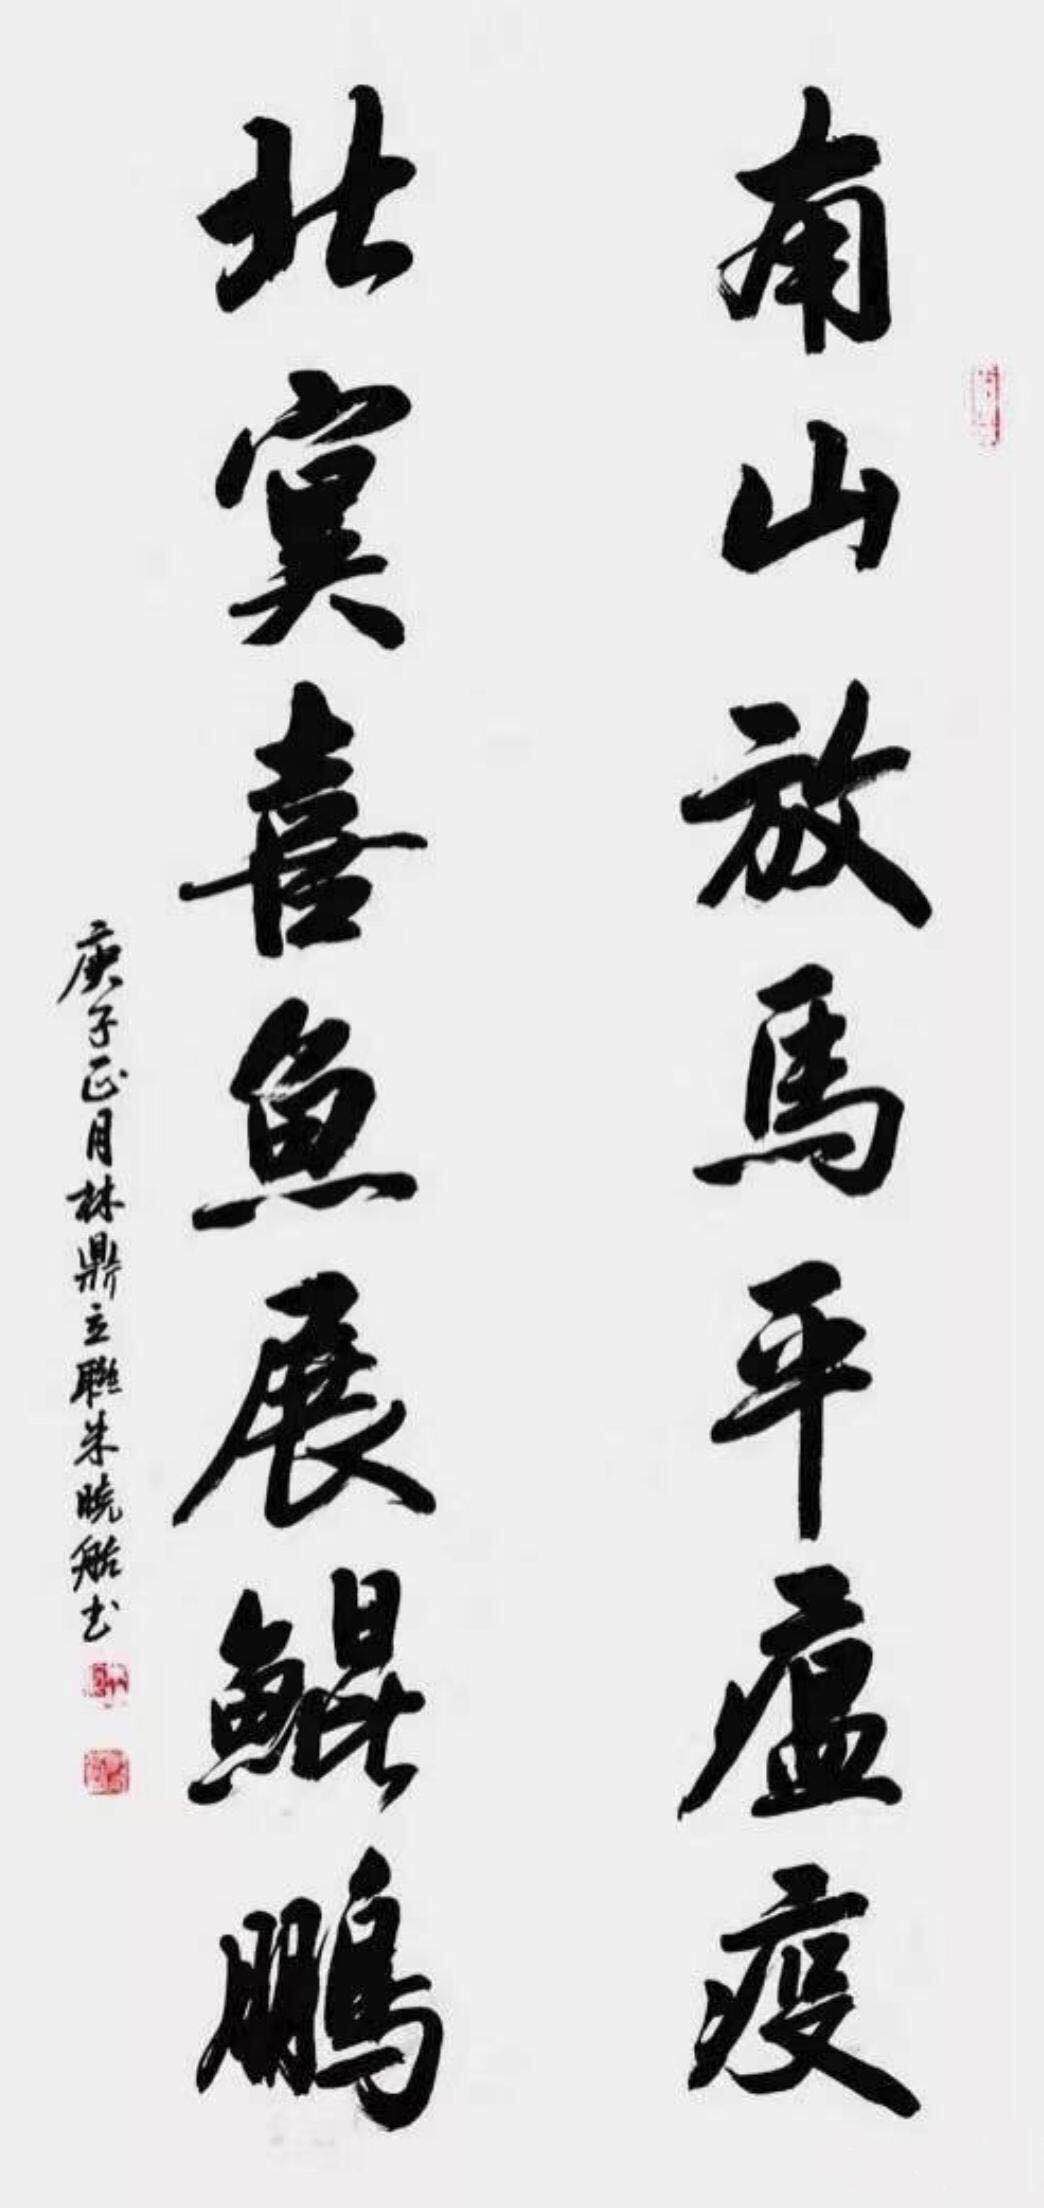 南山放馬平瘟疫
北冥喜魚展鯤鵬
庚子正月林鼎立聯朱曉船书